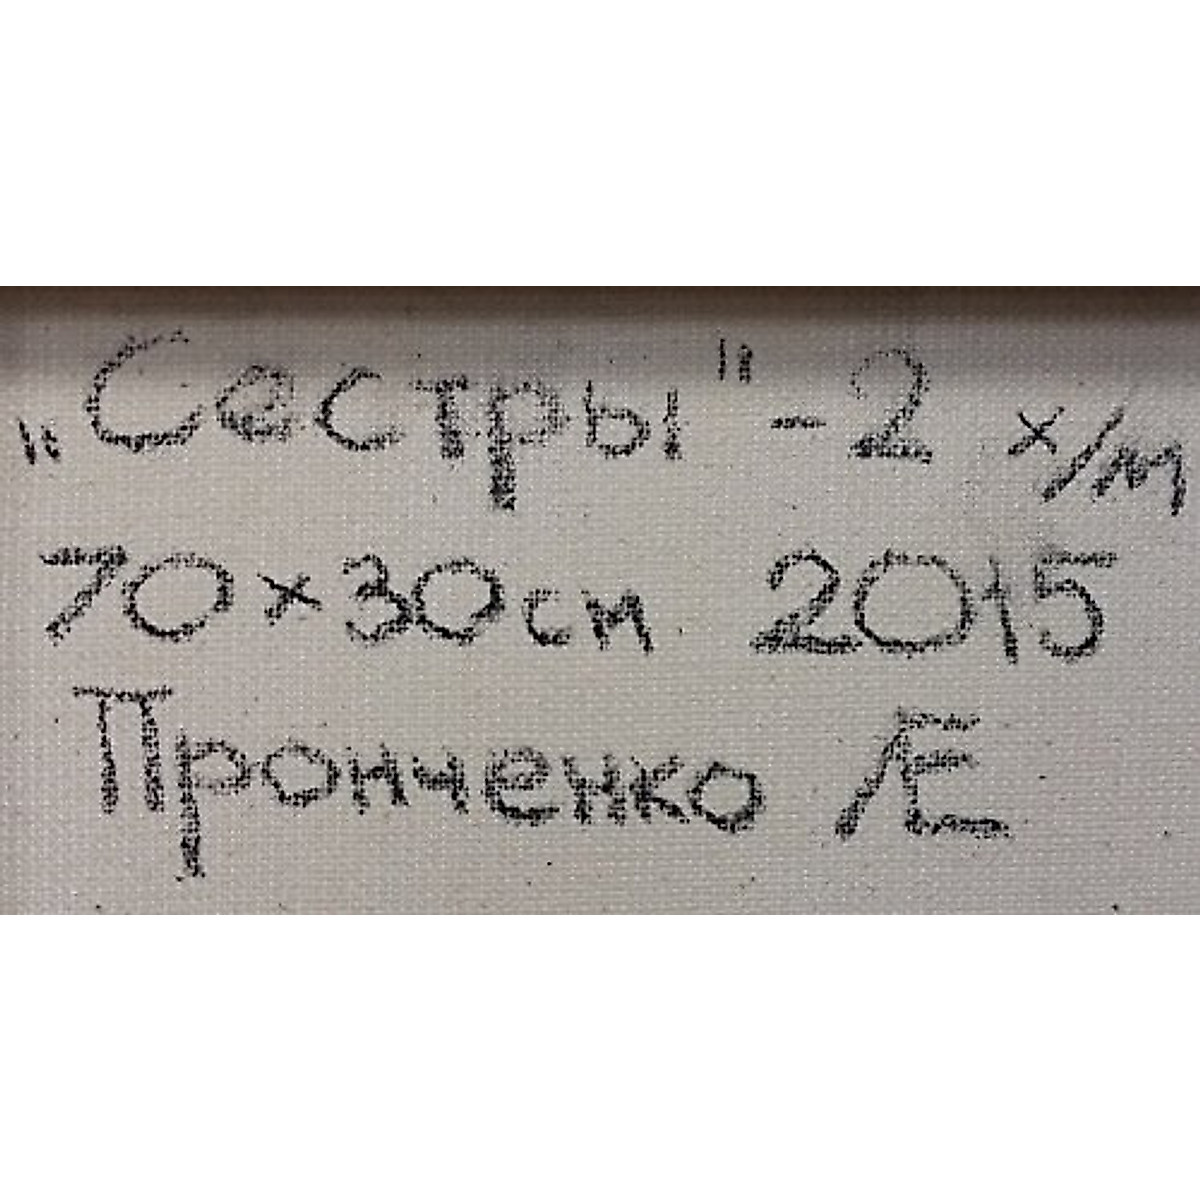 „Сестры" - 2 х/м
70×30см 2015
Пронченко /Е